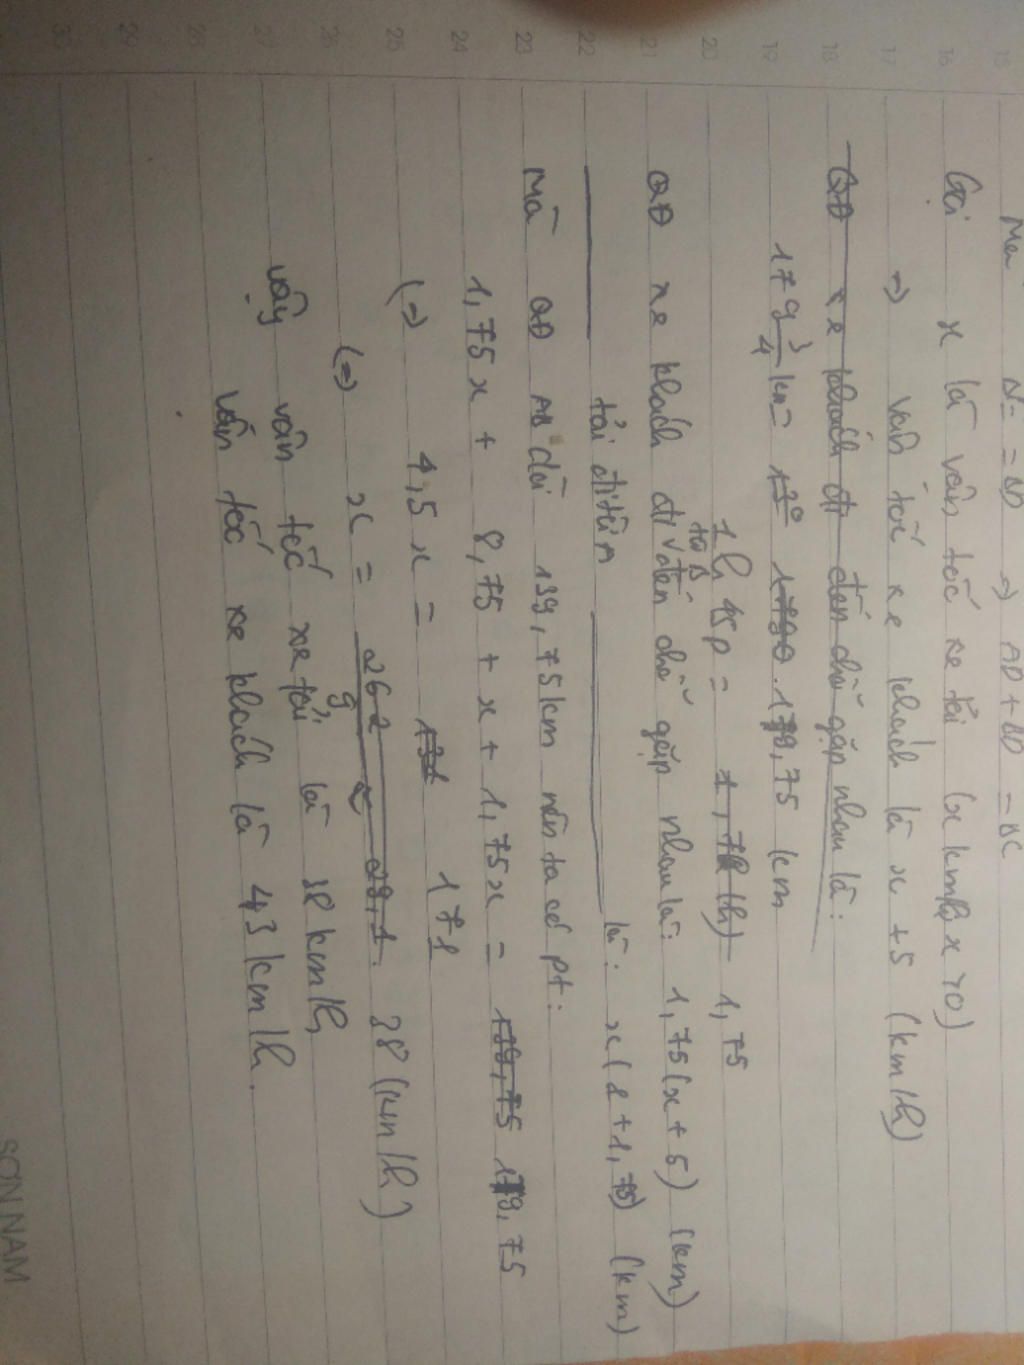 15 16 17 18 19 20 21 22 23 24 25 26 27 28 29 30
AD + BD = BC
Gọi x là vận tốc xe tải (x km/h, x > 0)
=) vận tốc xe khách là x + 5 (km/h)
QĐ xe khách đi đến chỗ gặp nhau là:
179 3/4 km = 179,75 km
1h 45p = 1,75
QĐ xe khách đi từ B đến chỗ gặp nhau là: 1,75(x + 5) (km)
tải đi từ A là: x(1 + 1,75) (km)
Mà QĐ AB dài 139,75km nên ta có pt:
1,75x + 8,75 + x + 1,75x = 179,75
(=) 4,5x = 171
(=) x = 38 (km/h)
Vậy vận tốc xe tải là 38 km/h
vận tốc xe khách là 43 km/h.
SƠN NAM